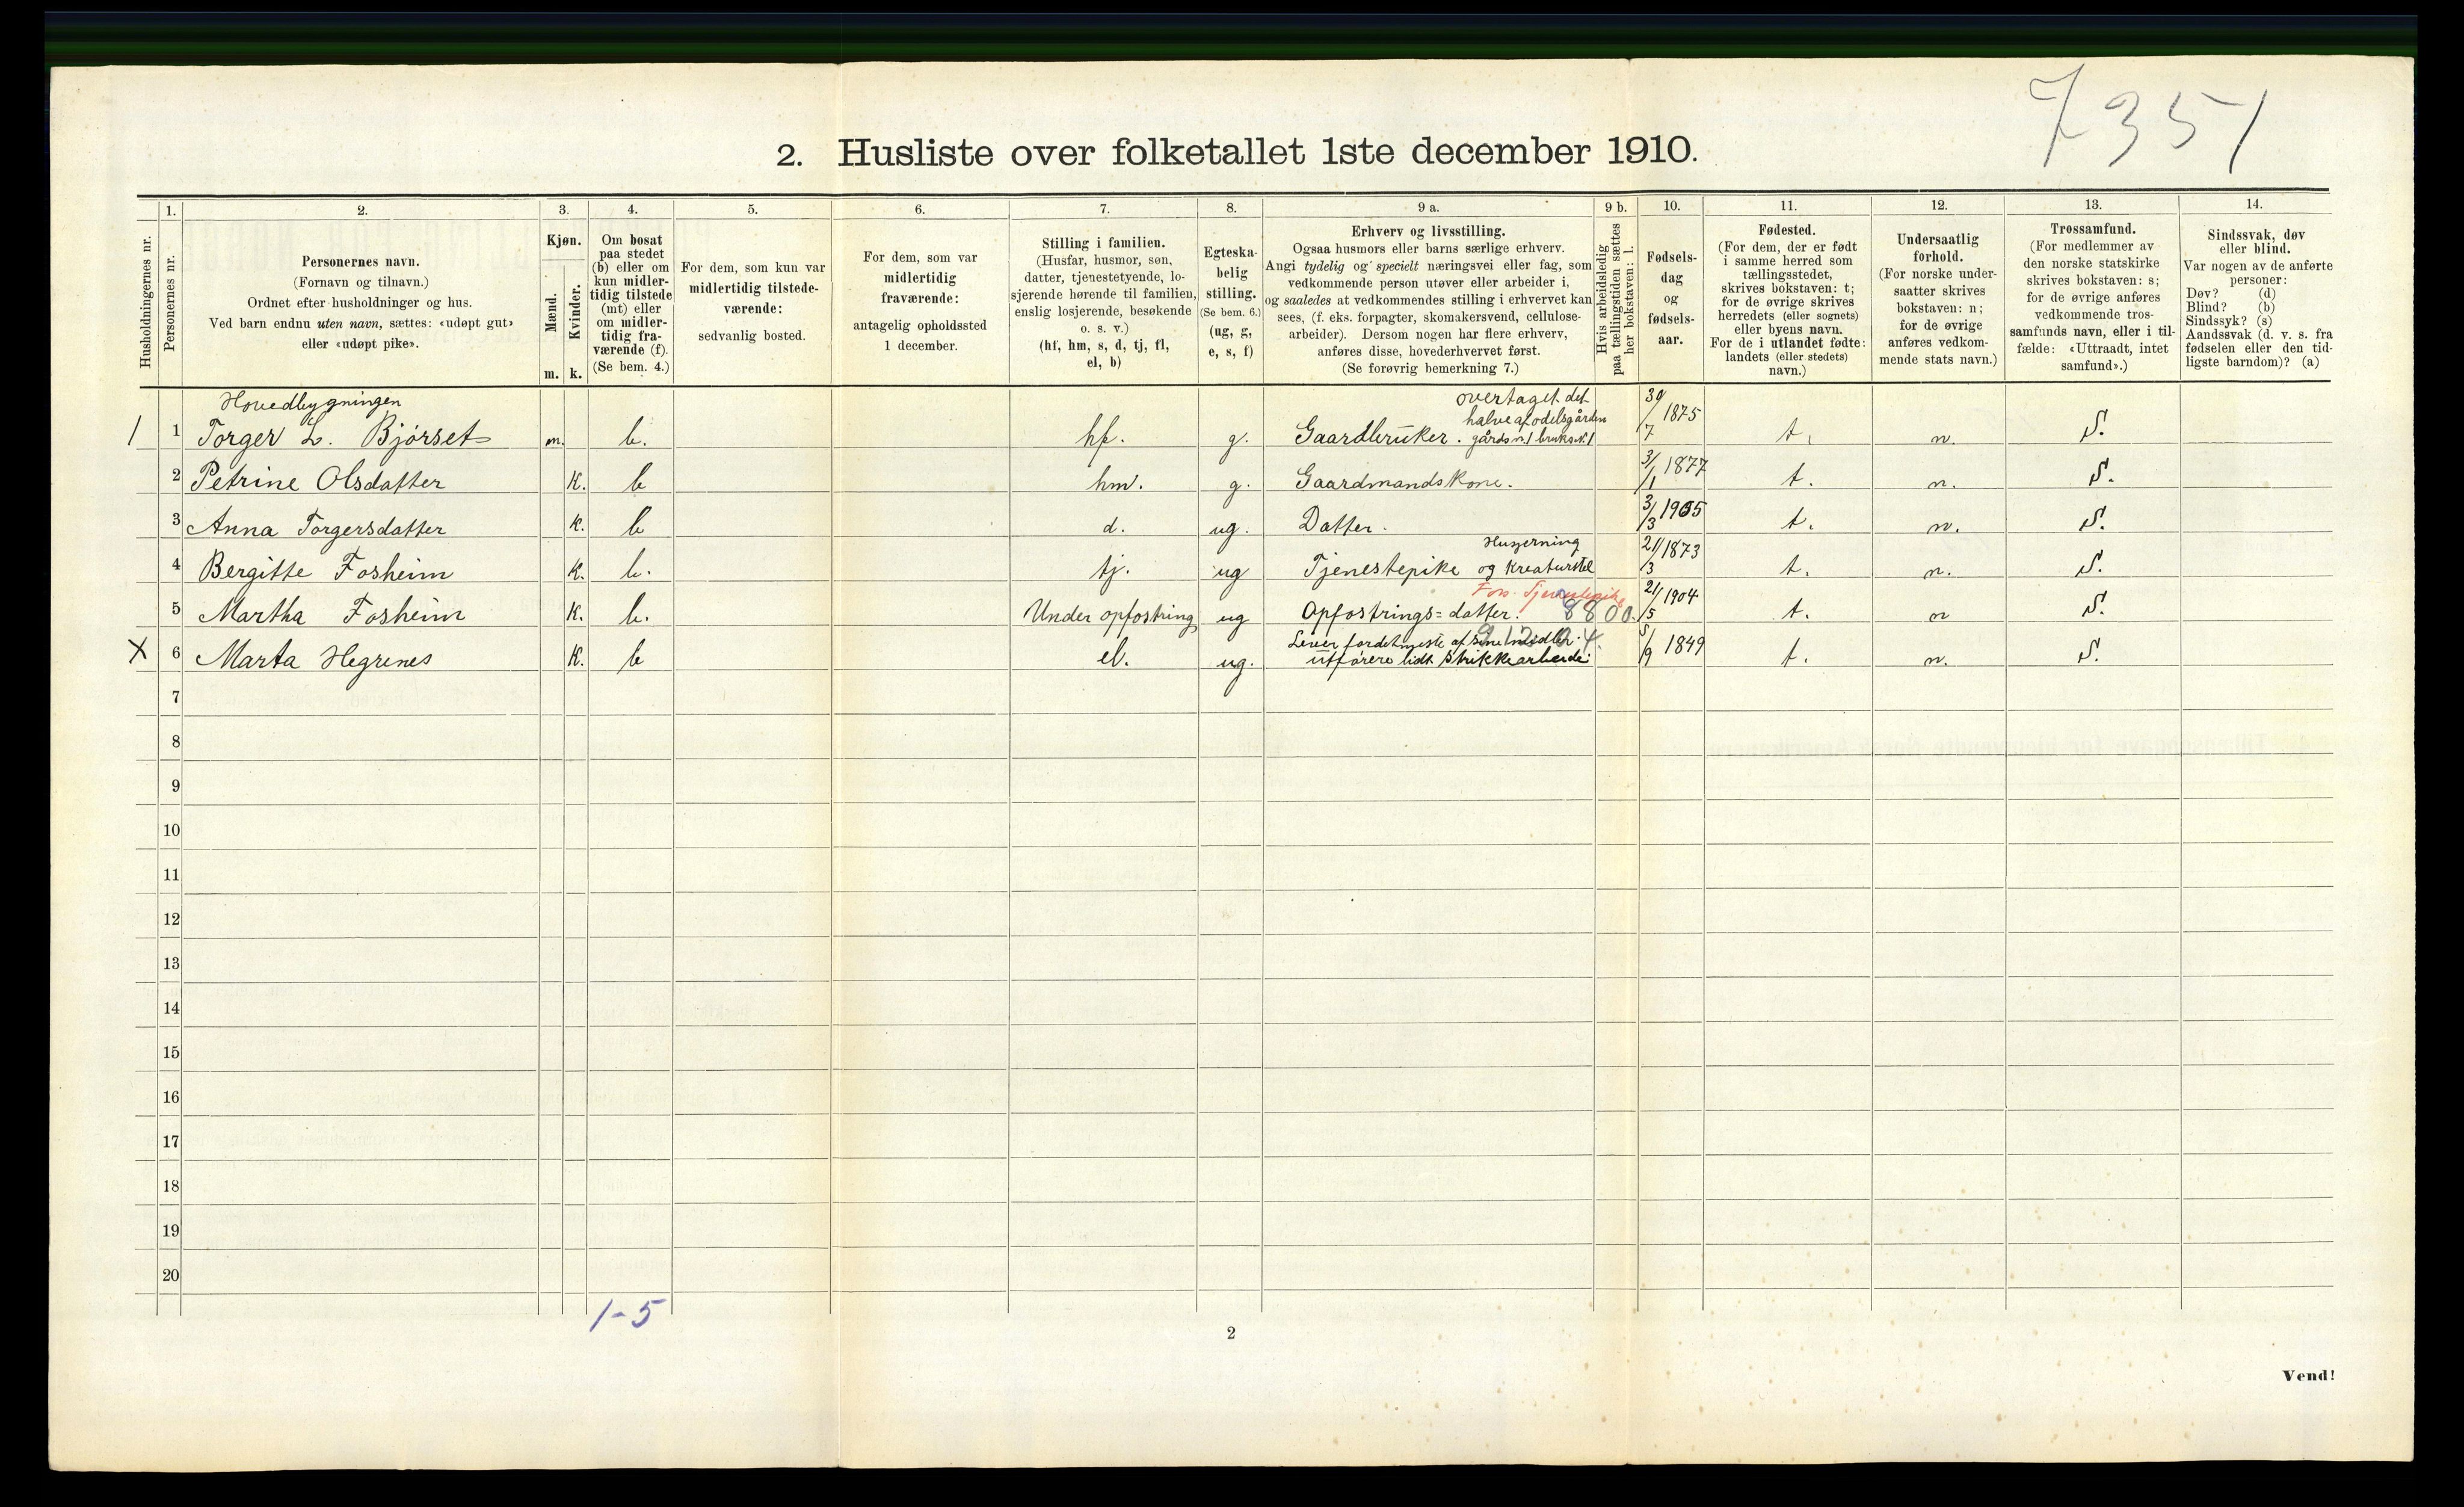 7351
2. Husliste over folketallet 1ste december 1910.
Husholdningernes nr.
1.
Personernes nr.
2.
Personernes navn.
(Fornavn og tilnavn.)
Ordnet efter husholdninger og hus.
Ved barn endnu uten navn, sættes: «udøpt gut»
eller «udøpt pike».
3.
Kjøn.
Mænd.
Kvinder.
m. k.
4.
Om bosat
paa stedet
(b) eller om
kun midler-
tidig tilstede
(mt) eller
om midler-
tidig fra-
værende (f).
(Se bem. 4.)
5.
For dem, som kun var
midlertidig tilstede-
værende:
sedvanlig bosted.
6.
For dem, som var
midlertidig
fraværende:
antagelig opholdssted
1 december.
7.
Stilling i familien.
(Husfar, husmor, søn,
datter, tjenestetyende, lo-
sjerende hørende til familien,
enslig losjerende, besøkende
o. s. v.)
(hf, hm, s, d, tj, fl,
el, b)
8.
Egteska-
belig
stilling.
(Se bem. 6.)
(ug, g,
e, s, f)
9 a.
Erhverv og livsstilling.
Ogsaa husmors eller barns særlige erhverv.
Angi tydelig og specielt næringsvei eller fag, som
vedkommende person utøver eller arbeider i,
og saaledes at vedkommendes stilling i erhvervet kan
sees, (f. eks. forpagter, skomakersvend, cellulose-
arbeider). Dersom nogen har flere erhverv,
anføres disse, hovederhvervet først.
(Se forøvrig bemerkning 7.)
9 b.
Hvis arbeidsledig
paa tællingstiden sættes
her bokstaven: l.
10.
Fødsels-
dag
og
fødsels-
aar.
11.
Fødested.
(For dem, der er født
i samme herred som
tællingsstedet,
skrives bokstaven: t;
for de øvrige skrives
herredets (eller sognets)
eller byens navn.
For de i utlandet fødte:
landets (eller stedets)
navn.)
12.
Undersaatlig
forhold.
(For norske under-
saatter skrives
bokstaven: n;
for de øvrige
anføres vedkom-
mende stats navn.)
13.
Trossamfund.
(For medlemmer av
den norske statskirke
skrives bokstaven: s;
for de øvrige anføres
vedkommende tros-
samfunds navn, eller i til-
fælde: «Uttraadt, intet
samfund».)
14.
Sindssvak, døv
eller blind.
Var nogen av de anførte
personer:
Døv? (d)
Blind? (b)
Sindssyk? (s)
Aandssvak (d. v. s. fra
fødselen eller den tid-
ligste barndom)? (a)
Hovedbygningen
overtaget det
halve af odelsgården
1 1 Torger L. Bjørset m. b. hf. g. Gaardbruker. gårds nr. 1 bruks N. 1 30/7 1875 t. n. S.
2 Petrine Olsdatter K. b hm. g. Gaardmandskone. 3/1 1877 t. n. S.
3 Anna Torgersdatter K. b d. ug. Datter. 3/3 1905 t. n. S.
Husgerning
4 Bergitte Fosheim K. b. tj. ug Tjenestepike og Kreaturstel 21/3 1873 t. n. S.
Fors. Tjenestepike
5 Martha Fosheim K. b. Under opfostring ug Opfostrings=datter. 8800. 21/5 1904 t. n S.
Lever fordetmeste af sine midler.
X 6 Marta Hegrenes K. b el. ug. utfører lidt strikkearbeide. 5/9 1849 t. n. S.
7
8
9
10
11
12
13
14
15
16
17
18
19
20
1-5
2
Vend!